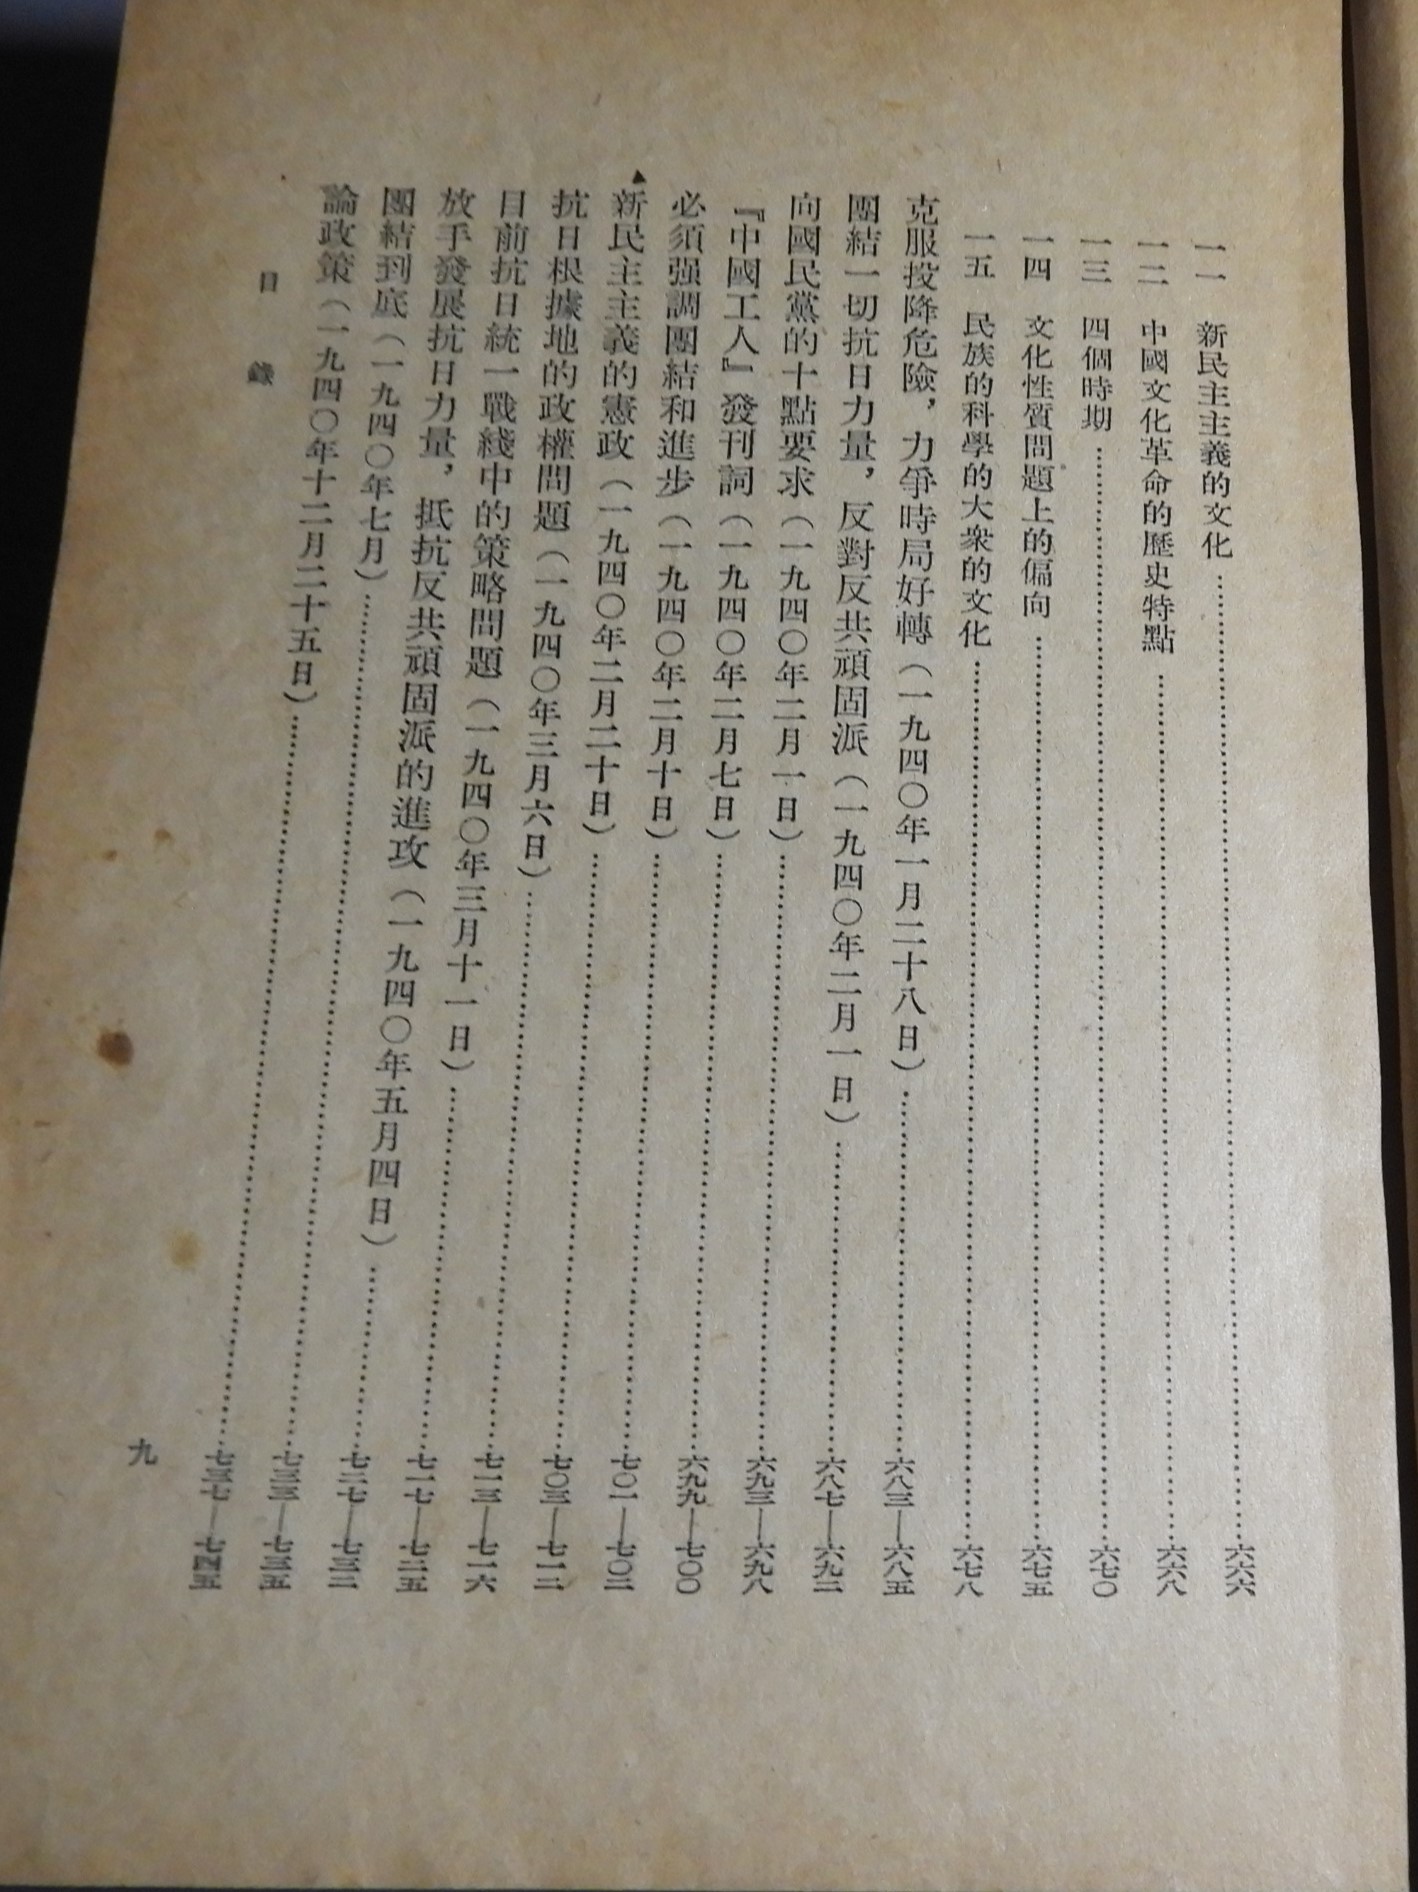 一一　新民主主義的文化……六六六
一二　中國文化革命的歷史特點……六六八
一三　四個時期……六七〇
一四　文化性質問題上的偏向……六七五
一五　民族的科學的大衆的文化……六七八
克服投降危險，力爭時局好轉（一九四〇年一月二十八日）……六八三—六八五
團結一切抗日力量，反對反共頑固派（一九四〇年二月一日）……六八七—六九二
向國民黨的十點要求（一九四〇年二月一日）……六九三—六九八
『中國工人』發刊詞（一九四〇年二月七日）……六九九—七〇〇
必須强調團結和進步（一九四〇年二月十日）……七〇一—七〇二
新民主主義的憲政（一九四〇年二月二十日）……七〇三—七一二
抗日根據地的政權問題（一九四〇年三月六日）……七一三—七一六
目前抗日統一戰綫中的策略問題（一九四〇年三月十一日）……七一七—七二五
放手發展抗日力量，抵抗反共頑固派的進攻（一九四〇年五月四日）……七二七—七三二
團結到底（一九四〇年七月）……七三三—七三五
論政策（一九四〇年十二月二十五日）……七三七—七四五
目　錄
九